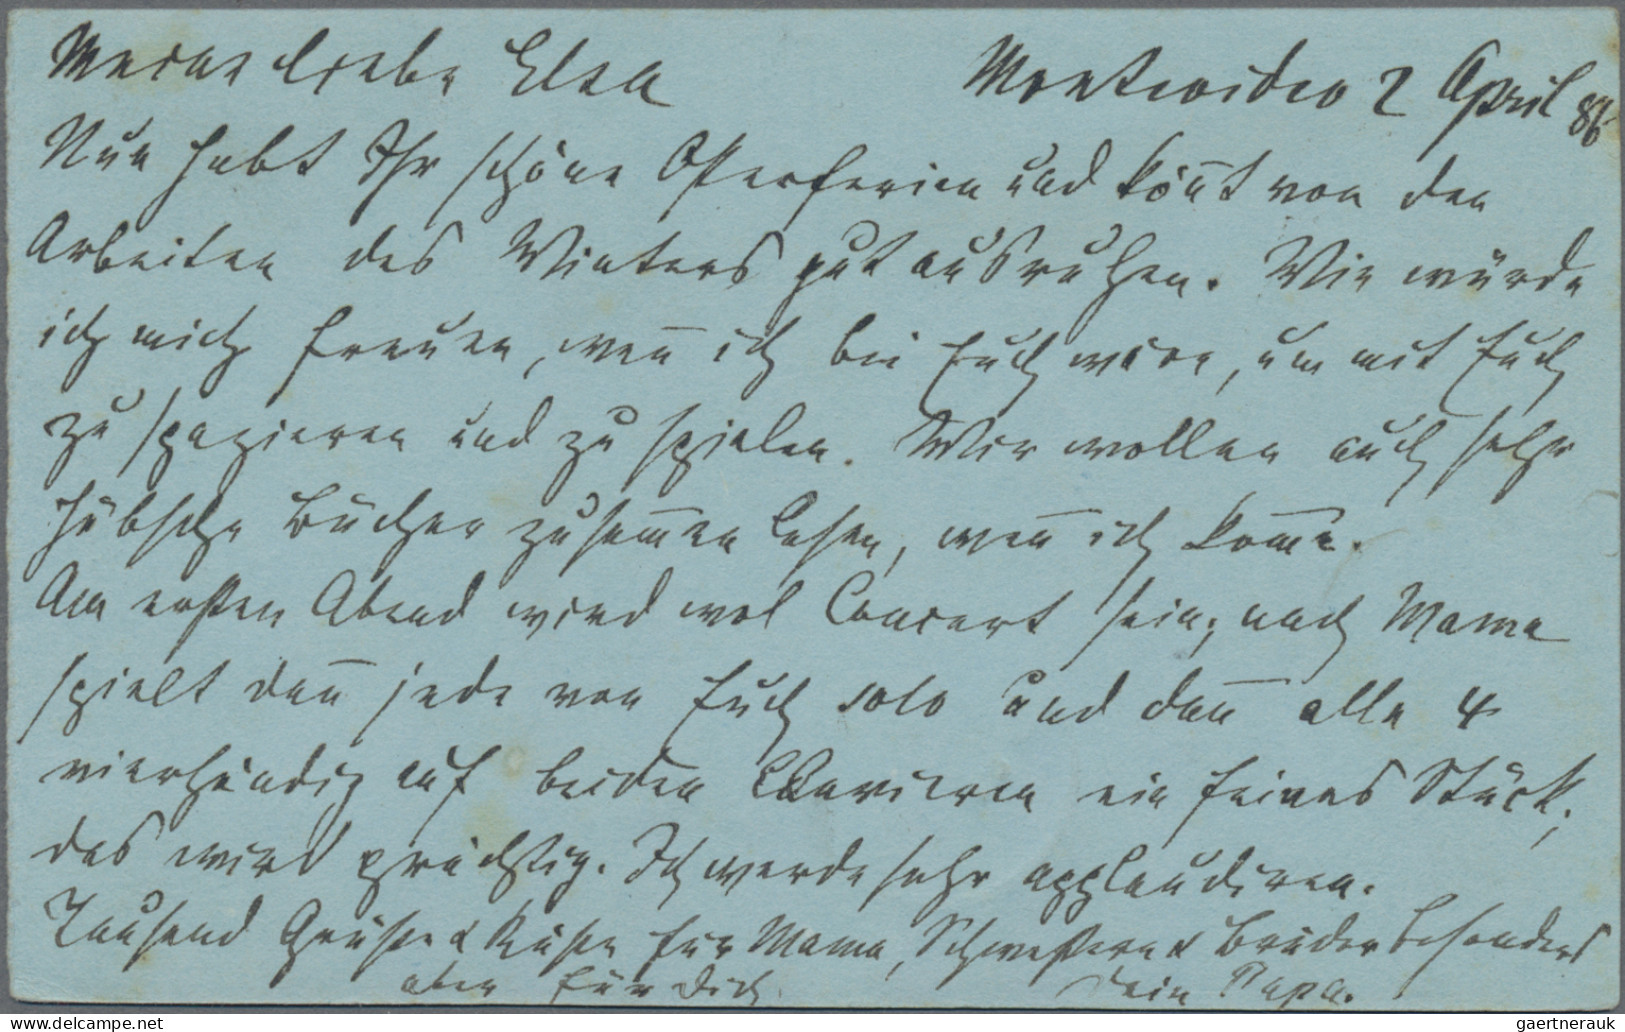 Meine liebe Elsa
Montevideo 2 April 86
Nun habt Ihr schöne Osterferien und kön̄t von den
Arbeiten des Winters gut ausruhen. Wie würde
ich mich freuen, wen̄ ich bei Euch wäre, um mit Euch
zu spazieren und zu spielen. Wir wollen auch sehr
hübsche Bücher zusam̄en lesen, wen̄ ich kom̄e.
Am ersten Abend wird wol Concert sein; auch Mama
spielt dan̄ jede von Euch solo und dan̄ alle 4
vierhändig auf beiden Clavieren ein feines Stück;
das wird prächtig. Ich werde sehr applaudiren.
Tausend Grüße & Küße für Mama, Schwestern & Brüder besonders
aber für Dich. Dein Papa.
gaertnerauk
www.delcampe.net